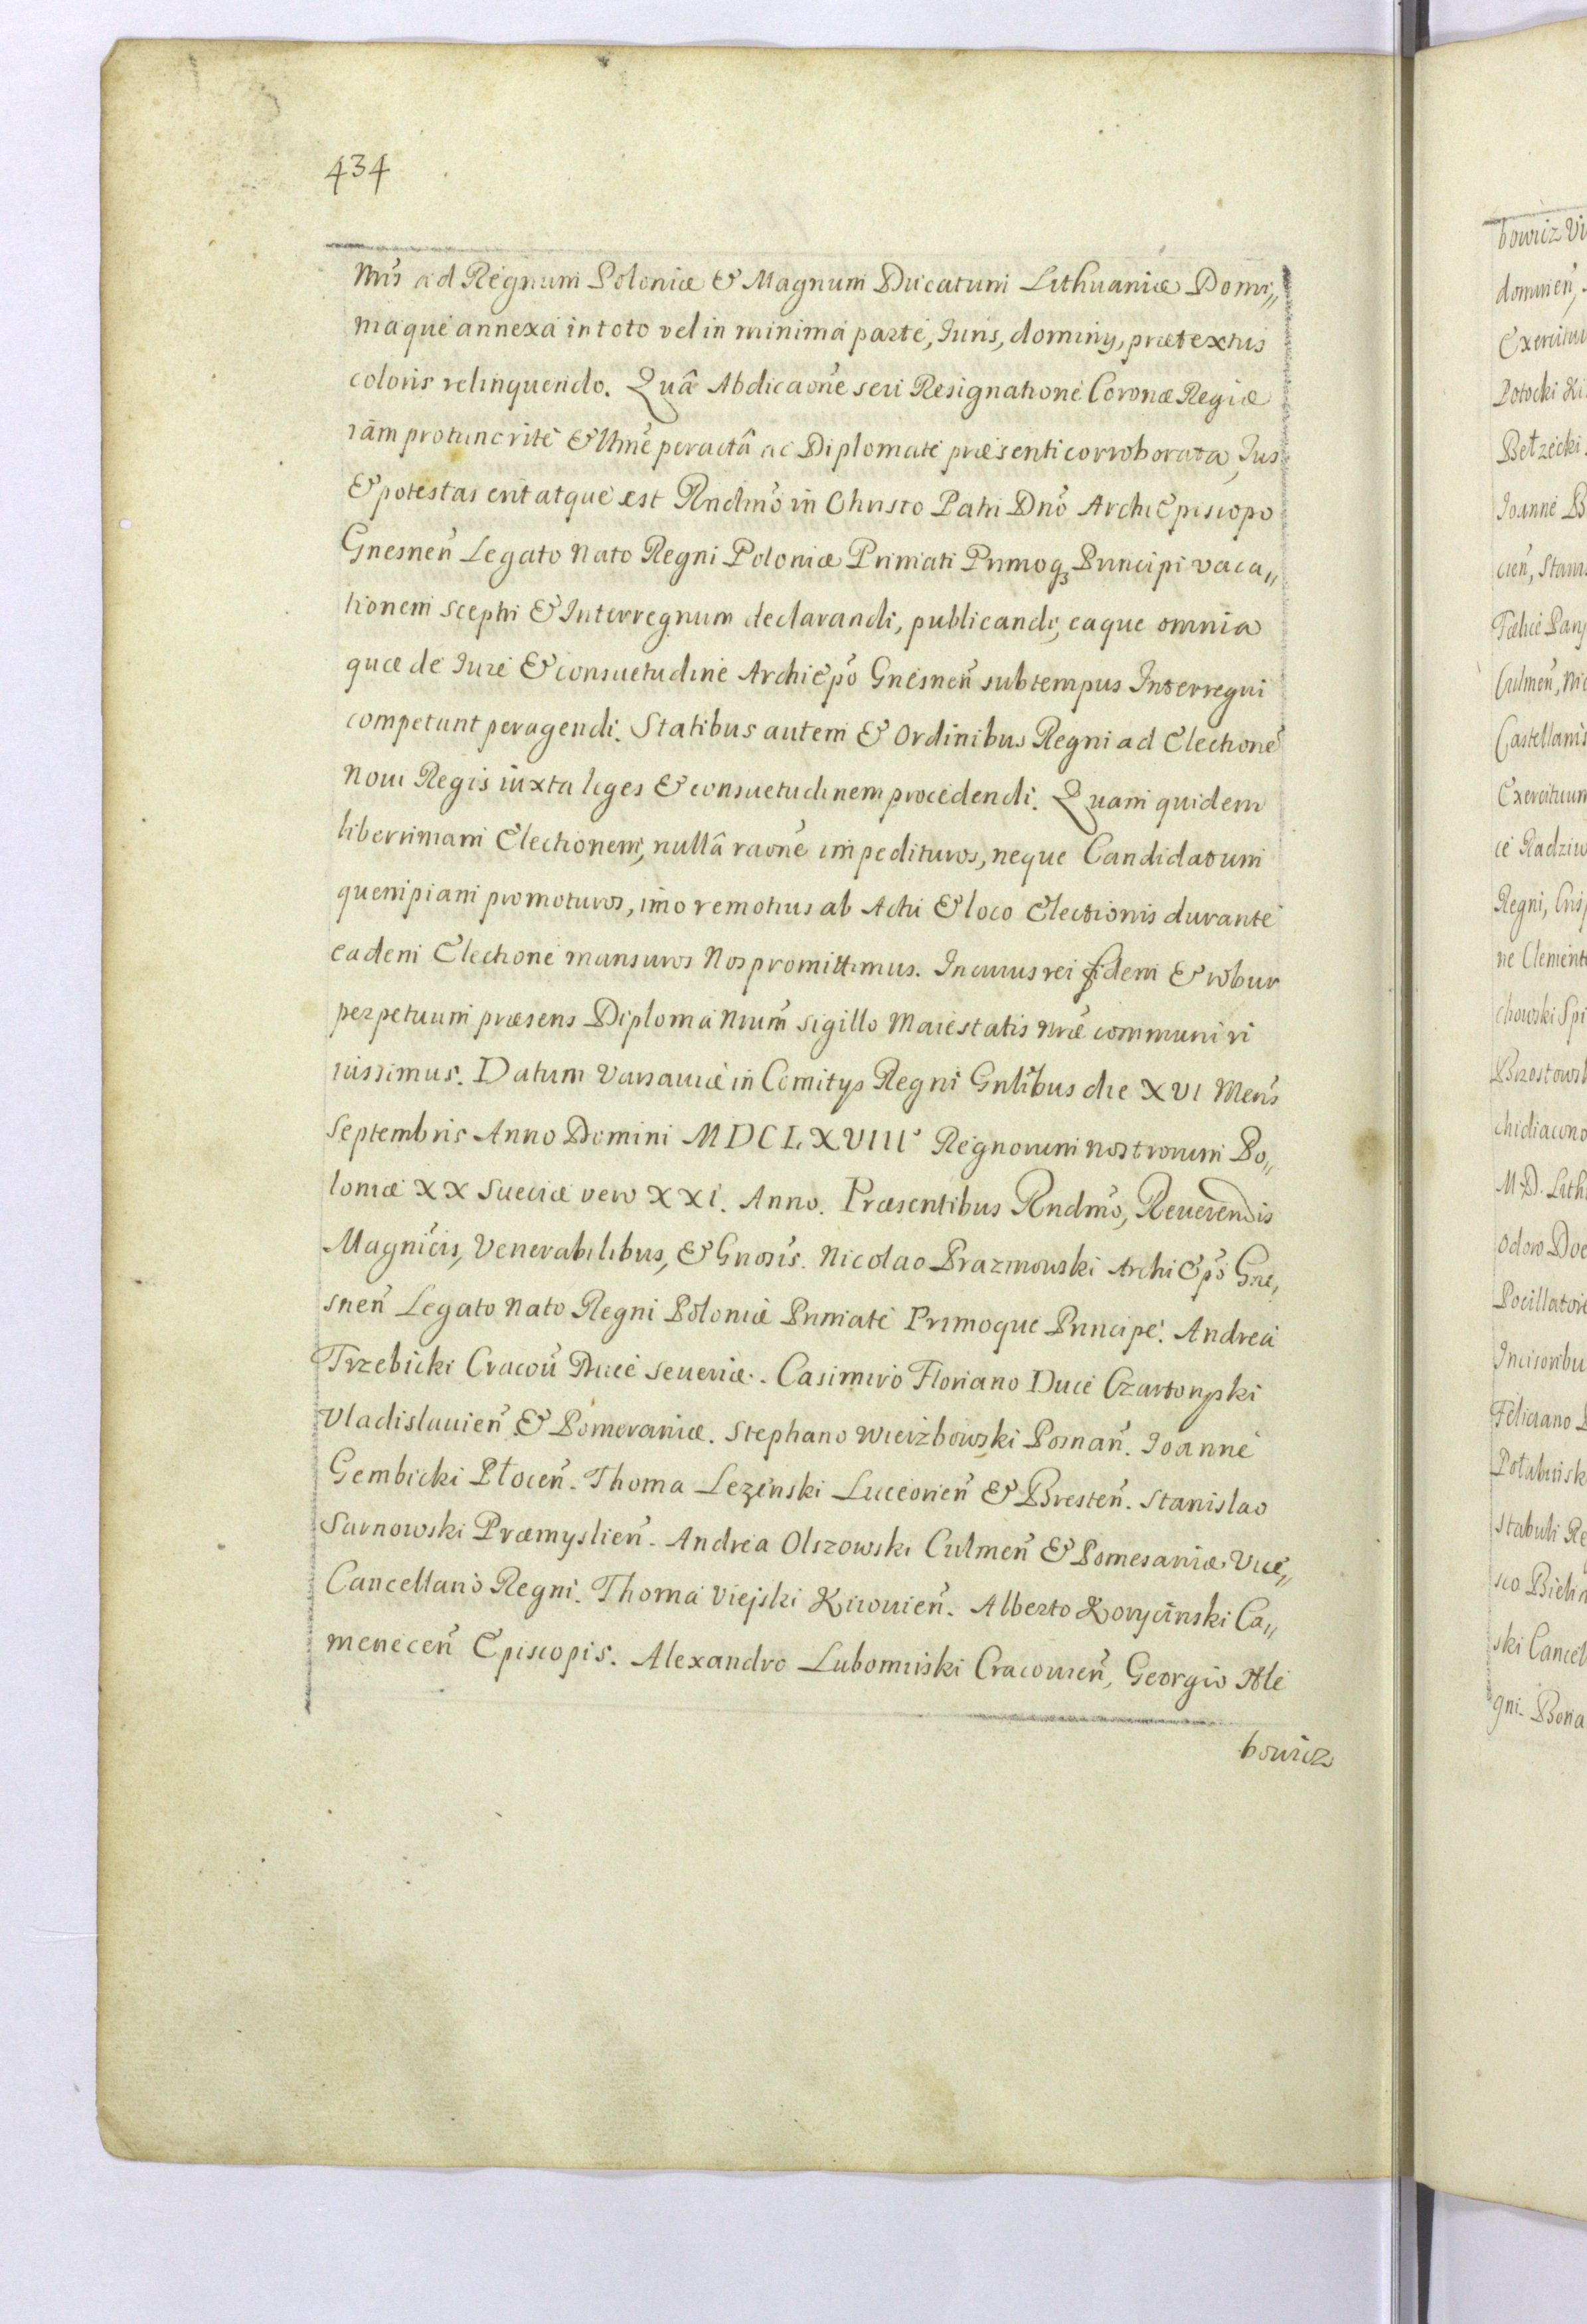 434
Nris ad Regnum Poloniæ & Magnum Ducatum Lithuaniæ Domi„
niaque annexa in toto vel in minima parte, Iuris, dominy, prætextus
coloris relinquendo. Quâ Abdicaoñe seu Resignatione Coronæ Regiæ
iam protunc rite & lttme peractâ ac Diplomate præsenti corroborata, Ius
& potestas erit atque est Rndmo in Christo Patri Dno Archi Episcopo
Gnesneñ Legato Nato Regni Poloniæ Primati Primoq3 Principi vaca„
tionem sceptri & Interregnum declarandi, publicandi, eaque omnia
quæ de Iure & consuetudine Archiepo Gnesneñ sub tempus Interregni
competunt peragendi. Statibus autem & Ordinibus Regni ad Electionē
Novi Regis iuxta leges & consuetudinem procedendi. Quam quidem
liberrimam Electionem, nullâ raoñe impedituros, neque Candidatum
quempiam promoturos, imo remotius ab Actu & loco Electionis durante
eadem Electione mansuros Nos promittimus. In cuius rei fidem & robur
perpetuum præsens Diploma Nrum sigillo Maiestatis Nræ communiri
iussimus. Datum Varsaviæ in Comitys Regni Gnlibus die XVI Mens
Septembris Anno Domini MDCLXVIII Regnorum nostrorum Po„
loniæ XX Sueciæ vero XXI. Anno. Præsentibus Rndmo, Reverendis
Magnicis, Venerabilibus, & Gnosis. Nicolao Prazmowski Archi Epo Gne„
sneñ Legato Nato Regni Poloniæ Primate Primoque Principe. Andrea
Trzebicki Cracov Duce Severiæ. Casimiro Floriano Duce Czartoryski
Vladislavieñ & Pomeraniæ. Stephano Wierzbowski Posnañ. Joanne
Gembicki Płoceñ. Thoma Lezenski Luceorieñ & Bresteñ. Stanislao
Sarnowski Præmyslieñ. Andrea Olszowski Culmeñ & Pomesaniæ Vice„
Cancellario Regni. Thoma Viejski Kijovieñ. Alberto Korycinski Ca„
meneceñ Episcopis. Alexandro Lubomirski Cracovieñ, Georgio Hle
bowicz
bowicz Vi
domirieñ,
Exercituu
Potocki Ki
Bełzecki
Joanne B
cieñ, Stanis
Fœlice Pary
Culmeñ, Nic
Castellanis
Exercituum
ce Radziw
Regni, Cris
ne Clemente
chowski Spi
Brzostowsk
chidiacono
M. D. Lith
odoro Doe
Pocillatore
Incisoribu
Feliciano
Potulinisk
Stabuli Re
sco Bielin
ski Cancel
gni. Bona